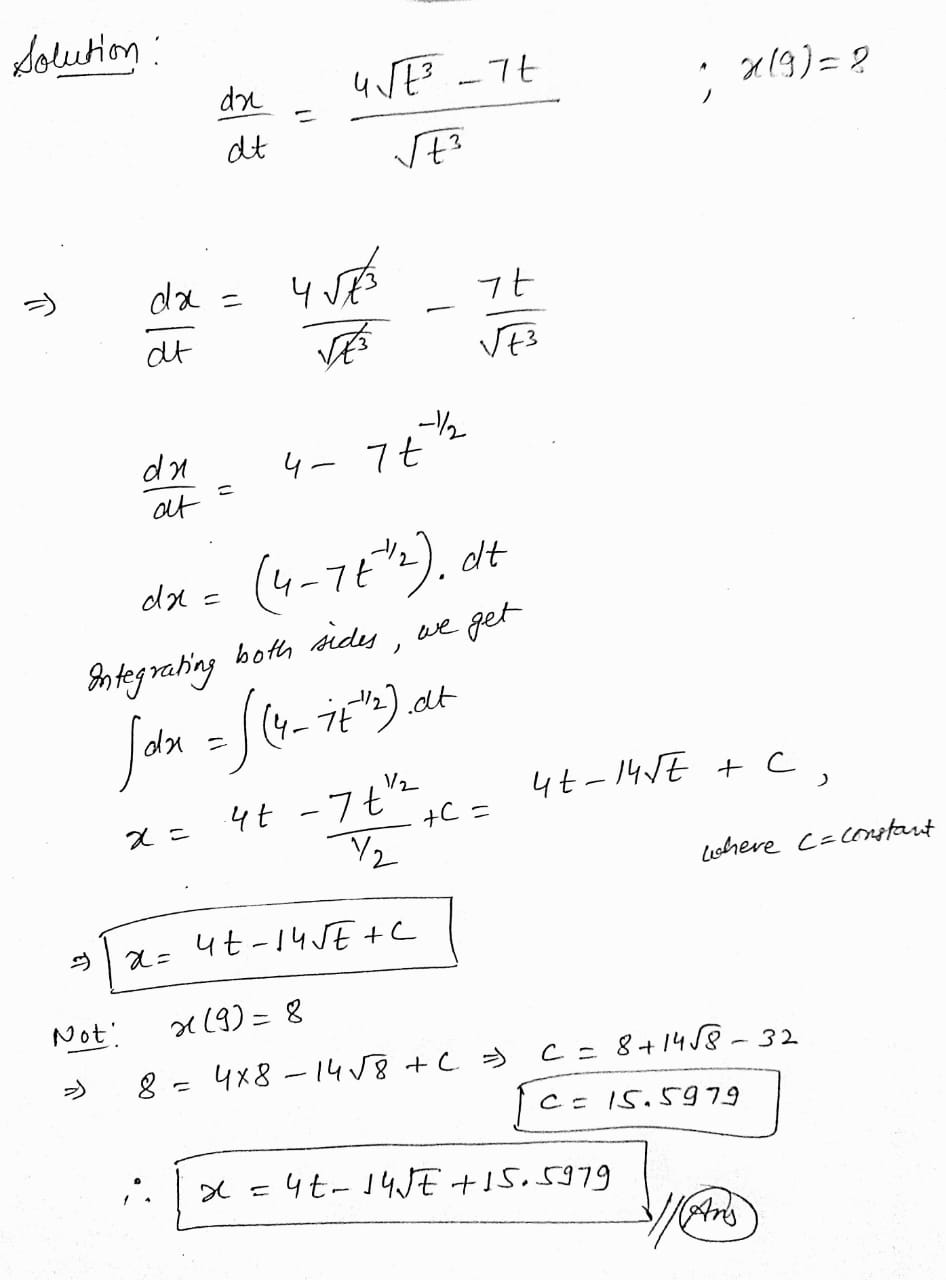 Solution :
dx/dt = (4√t³ - 7t)/√t³ ; x(9) = 8
⇒ dx/dt = 4√t³/√t³ - 7t/√t³
dx/dt = 4 - 7t^(-1/2)
dx = (4 - 7t^(-1/2)). dt
Integrating both sides, we get
∫dx = ∫(4 - 7t^(-1/2)).dt
x = 4t - 7t^(1/2)/(1/2) + C = 4t - 14√t + C,
where C = constant
⇒ x = 4t - 14√t + C
Not: x(9) = 8
⇒ 8 = 4×8 - 14√8 + C ⇒ C = 8 + 14√8 - 32
C = 15.5979
∴ x = 4t - 14√t + 15.5979 // Ans